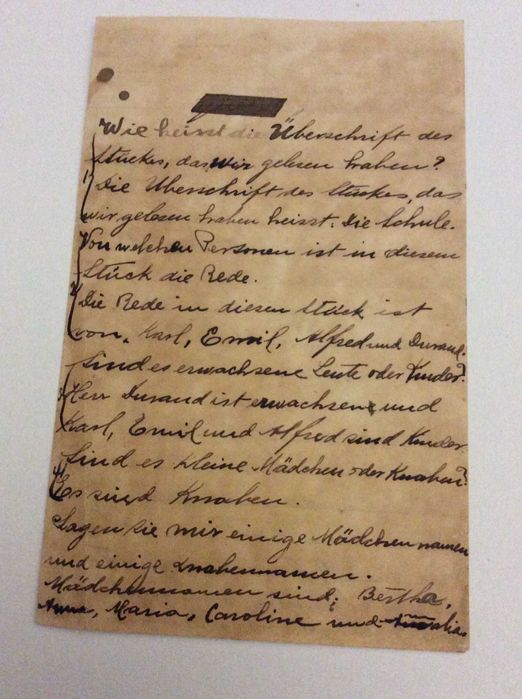 Wie heisst die Überschrift des
Stückes, das wir gelesen haben?
1) Die Uberschrift des Stuckes, das
wir gelesen haben heisst: Die Schule.
Von welchen Personen ist in diesem
Stück die Rede.
2) Die Rede in diesen Stück ist
von, Karl, Emil, Alfred und Durand.
Sind es erwachsene Leute oder Kinder?
Herr Durand ist erwachsen und
Karl, Emil und Alfred sind Kinder.
Sind es kleine Mädchen oder Knaben?
Es sind Knaben.
Sagen Sie mir einige Mädchennamen
und einige Knabennamen.
Mädchennamen sind: Bertha,
Anna, Maria, Caroline und